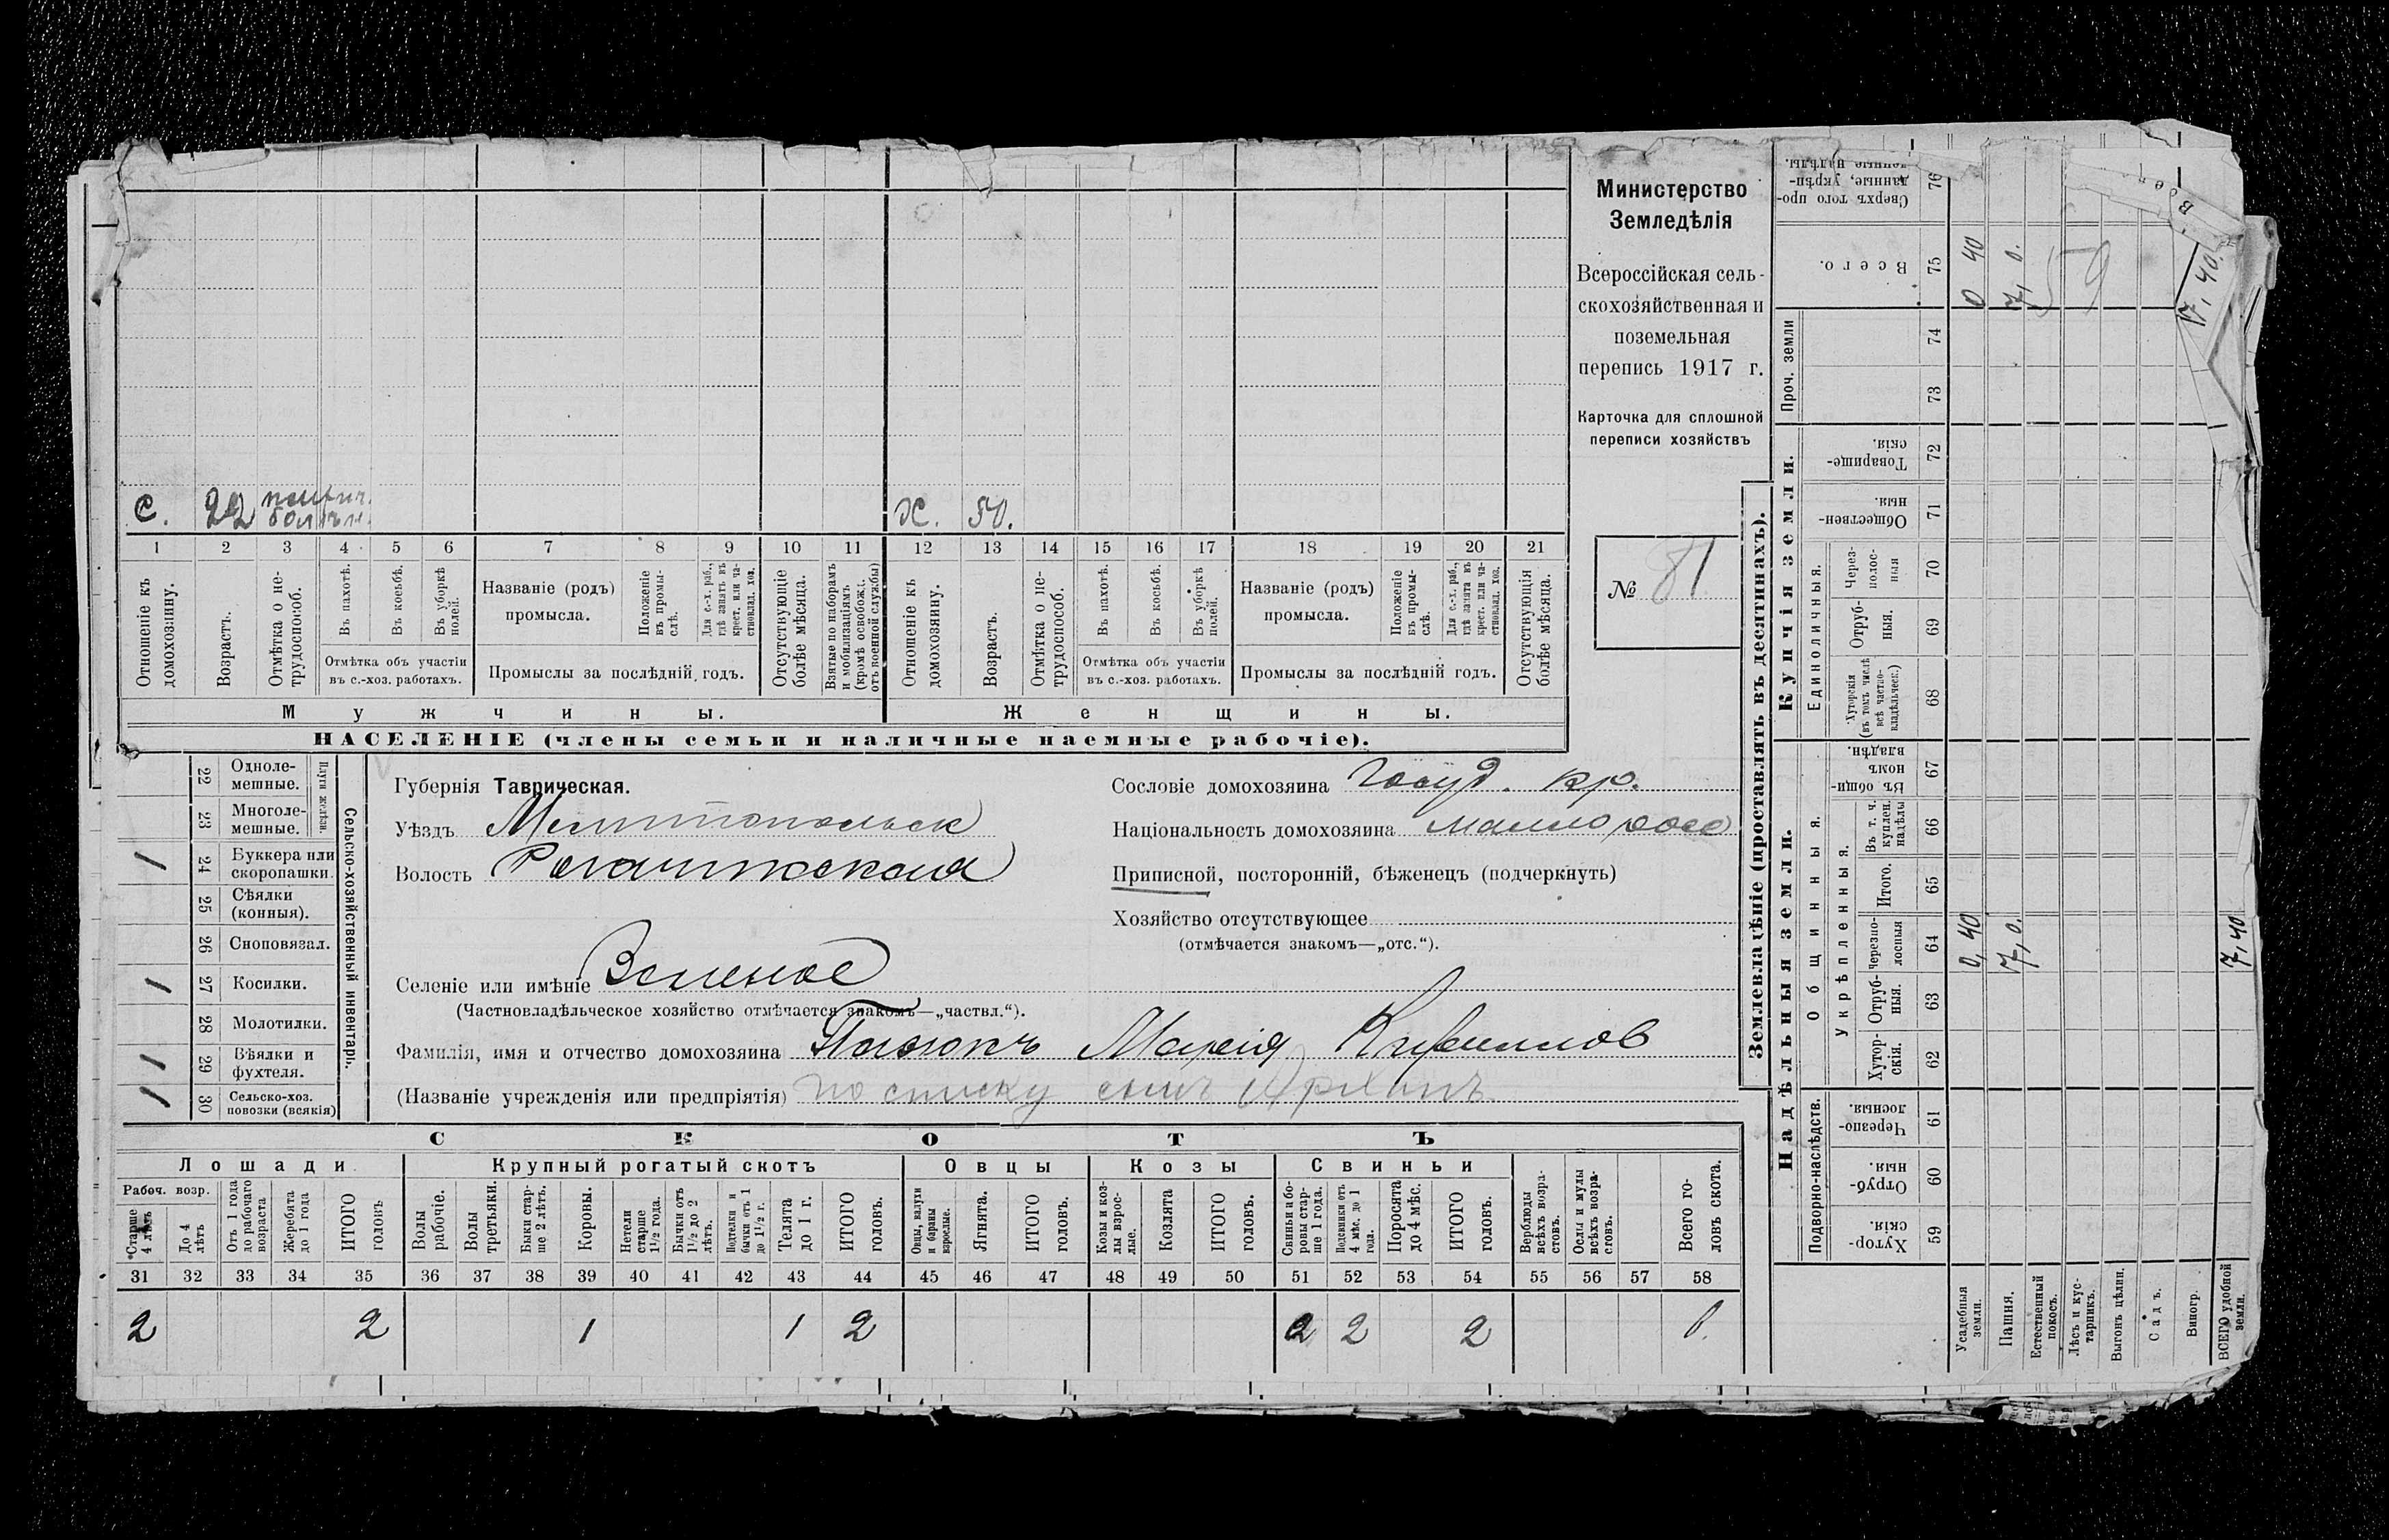 Министерство
Земледѣлія
Всероссійская сель-
скохозяйственная и
поземельная
перепись 1917 г.
Карточка для сплошной
переписи хозяйствъ
№ 81
С. 22 болѣн. Ж. 50.
1 2 3 4 5 6 7 8 9 10 11 12 13 14 15 16 17 18 19 20 21
Отношеніе къ домохозяину.
Возрастъ.
Отмѣтка о не-трудоспособ.
Въ пахотѣ.
Въ косьбѣ.
Въ уборкѣ полей.
Отмѣтка объ участіи
въ с.-хоз. работахъ.
Названіе (родъ)
промысла.
Положеніе въ промы-слѣ.
Для с.-х. раб., гдѣ занятъ въ крест. или ча-стновлад. хоз.
Промыслы за послѣдній годъ.
Отсутствующіе болѣе мѣсяца.
Взятые по наборамъ и мобилизаціямъ (кромѣ освобожд. отъ военной службы)
Отношеніе къ домохозяину.
Возрастъ.
Отмѣтка о не-трудоспособ.
Въ пахотѣ.
Въ косьбѣ.
Въ уборкѣ полей.
Отмѣтка объ участіи
въ с.-хоз. работахъ.
Названіе (родъ)
промысла.
Положеніе въ промы-слѣ.
Для с.-х. раб., гдѣ занята въ крест. или ча-стновлад. хоз.
Промыслы за послѣдній годъ.
Отсутствующія болѣе мѣсяца.
Мужчины. Женщины.
НАСЕЛЕНІЕ (члены семьи и наличные наемные рабочіе).
Сельско-хозяйственный инвентарь.
Плуги желѣзн.
22 Одноле-мешные.
23 Многоле-мешные.
1 24 Буккера или скоропашки.
25 Сѣялки (конныя).
26 Сноповязал.
1 27 Косилки.
28 Молотилки.
1 29 Вѣялки и фухтеля.
1 30 Сельско-хоз. повозки (всякія)
Губернія Таврическая.
Уѣздъ Мелитопольск
Волость Рогачикская
Селеніе или имѣніе Зеленое
(Частновладѣльческое хозяйство отмѣчается знакомъ—„частвл.“).
Сословіе домохозяина Госуд. кр.
Національность домохозяина малоросс
Приписной, посторонній, бѣженецъ (подчеркнуть)
Хозяйство отсутствующее
(отмѣчается знакомъ—„отс.“).
Фамилія, имя и отчество домохозяина Марія Кирилов
(Названіе учрежденія или предпріятія) по списку сынъ Архипъ
СКОТЪ
Лошади Крупный рогатый скотъ Овцы Козы Свиньи
Рабоч. возр.
Старше 4 лѣтъ
До 4 лѣтъ
Отъ 1 года до рабочаго возраста
Жеребята до 1 года
ИТОГО головъ
Волы рабочіе.
Волы третьяки.
Быки стар-ше 2 лѣтъ.
Коровы.
Нетели старше 1½ года.
Бычки отъ 1½ до 2 лѣтъ.
Подтелки и бычки отъ 1 до 1½ г.
Телята до 1 г.
ИТОГО головъ.
Овцы, валухи и бараны взрослые.
Ягнята.
ИТОГО головъ.
Козы и коз-лы взрос-лые.
Козлята
ИТОГО головъ.
Свиньи и бо-ровы стар-ше 1 года.
Подсвинки отъ 4 мѣс. до 1 года.
Поросята до 4 мѣс.
ИТОГО головъ.
Верблюды всѣхъ возра-стовъ.
Ослы и мулы всѣхъ возра-стовъ.
Всего го-ловъ скота.
31 32 33 34 35 36 37 38 39 40 41 42 43 44 45 46 47 48 49 50 51 52 53 54 55 56 57 58
2 2 1 1 2 2 2
Землевладѣніе (проставлять въ десятинахъ).
Надѣльныя земли. Купчія земли. Проч. земли
Подворно-наслѣдств. Общинныя. Единоличныя.
Укрѣпленныя.
Хутор-скія. 59
Отруб-ныя. 60
Черезпо-лосныя. 61
Хутор-скія. 62
Отруб-ныя. 63
Черезпо-лосныя 64
Итого. 65
Въ т. ч. куплен. надѣлы 66
Въ общи-номъ владѣн. 67
Хуторскія (въ томъ числѣ всѣ частно-владѣльческ.) 68
Отруб-ныя. 69
Через-полос-ныя 70
Обществен-ныя. 71
Товарище-скія. 72
73
74
Всего. 75
Сверхъ того про-данные, укрѣп-ленные надѣлы. 76
Усадебныя земли. 0,40 0 40
Пашня. 7,0. 7,0.
Естественный покосъ.
Лѣсъ и кус-тарникъ.
Выгонъ цѣлин.
Садъ.
Виногр.
ВСЕГО удобной земли. 7,40 7,40.
59